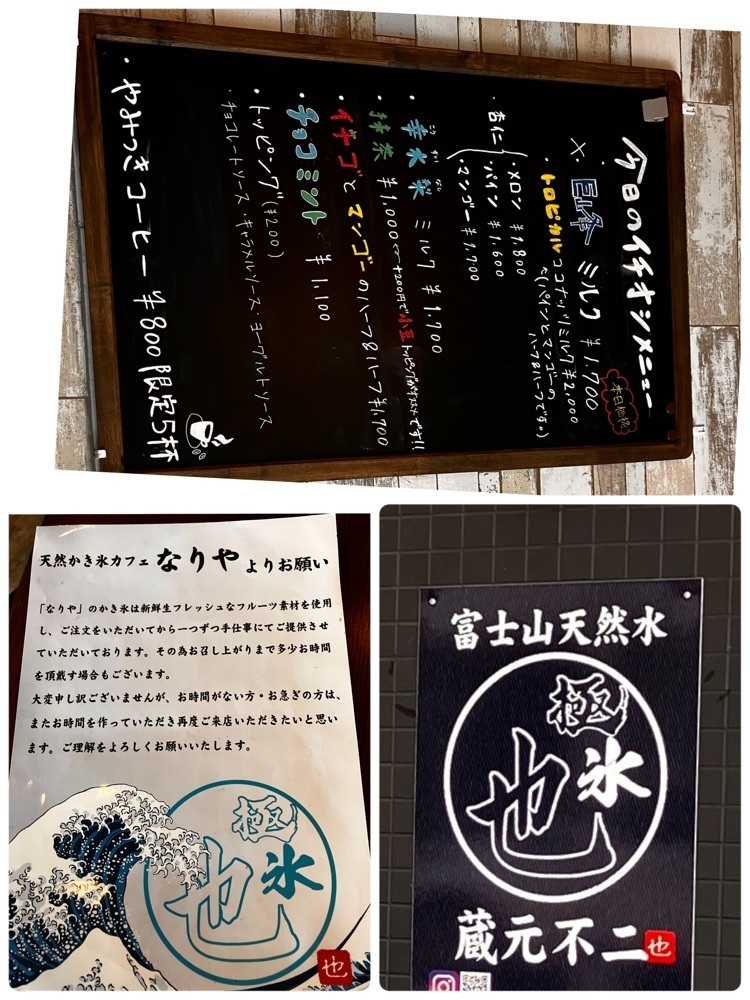 今日のイチオシメニュー
・巨峰 ミルク ¥1,700
×
・トロピカル ココナッツミルク ¥2,000
(パインとマンゴーの
ハーフ&ハーフです。)
・メロン ¥1,800
・杏仁 パイン ¥1,600
マンゴー ¥1,700
・幸水梨 ミルク ¥1,700
・抹茶 ¥1,000 +200円で小豆トッピングがオススメです!!
・イチゴとマンゴーのハーフ&ハーフ ¥1,700
・チョコミント ¥1,100
・トッピング (¥200)
・チョコレートソース・キャラメルソース・ヨーグルトソース
・やみつきコーヒー ¥800 限定5杯
天然かき氷カフェ なりや よりお願い
「なりや」のかき氷は新鮮生フレッシュなフルーツ素材を使用
し、ご注文をいただいてから一つずつ手仕事にてご提供させ
ていただいております。その為お召し上がりまで多少お時間
を頂戴す場合もございます。
大変申し訳ございませんが、お時間がない方・お急ぎの方は、
またお時間を作っていただき再度ご来店いただきたいと思い
ます。ご理解をよろしくお願いいたします。
極
氷
也
也
富士山天然水
極
氷
也
蔵元不二
也